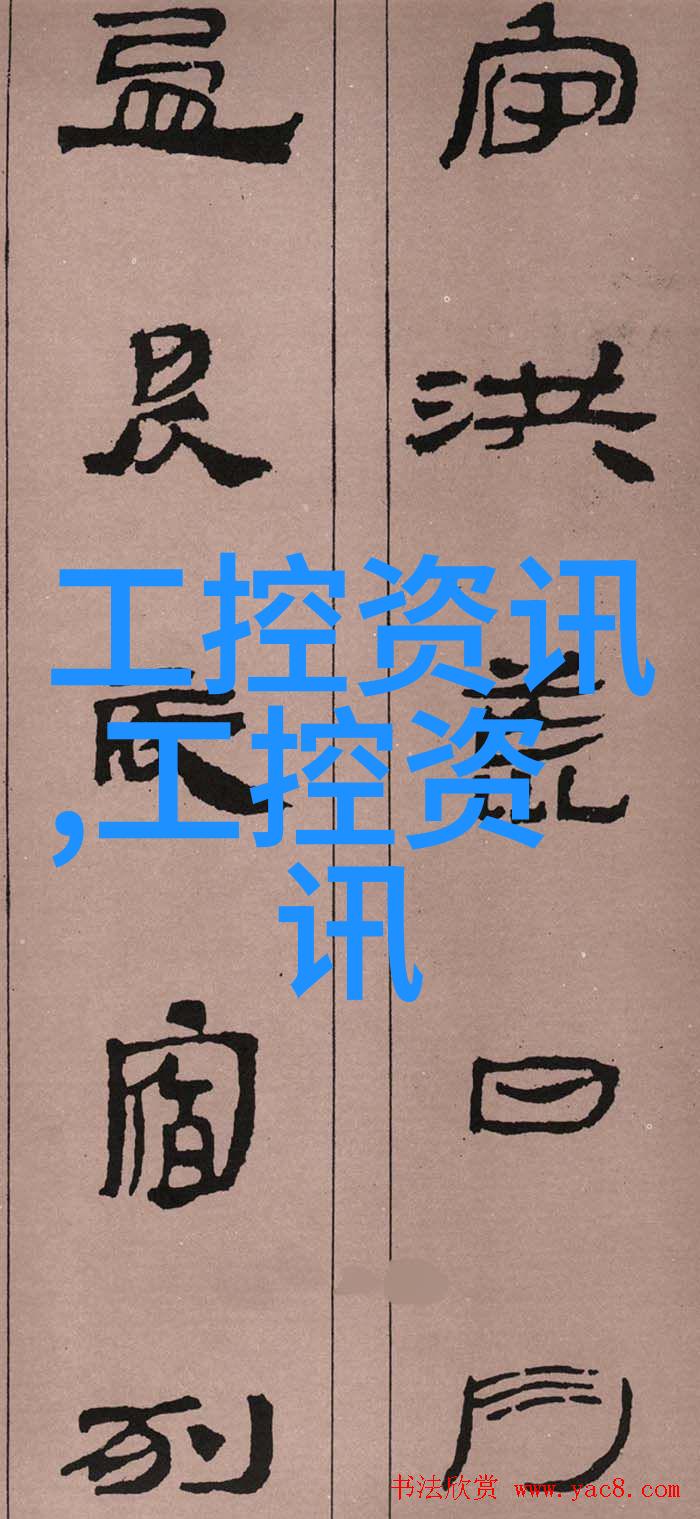 宙洪荒日月
盈昃辰宿列
工控资讯
,工控资
讯
书法欣赏 www.yac8.com